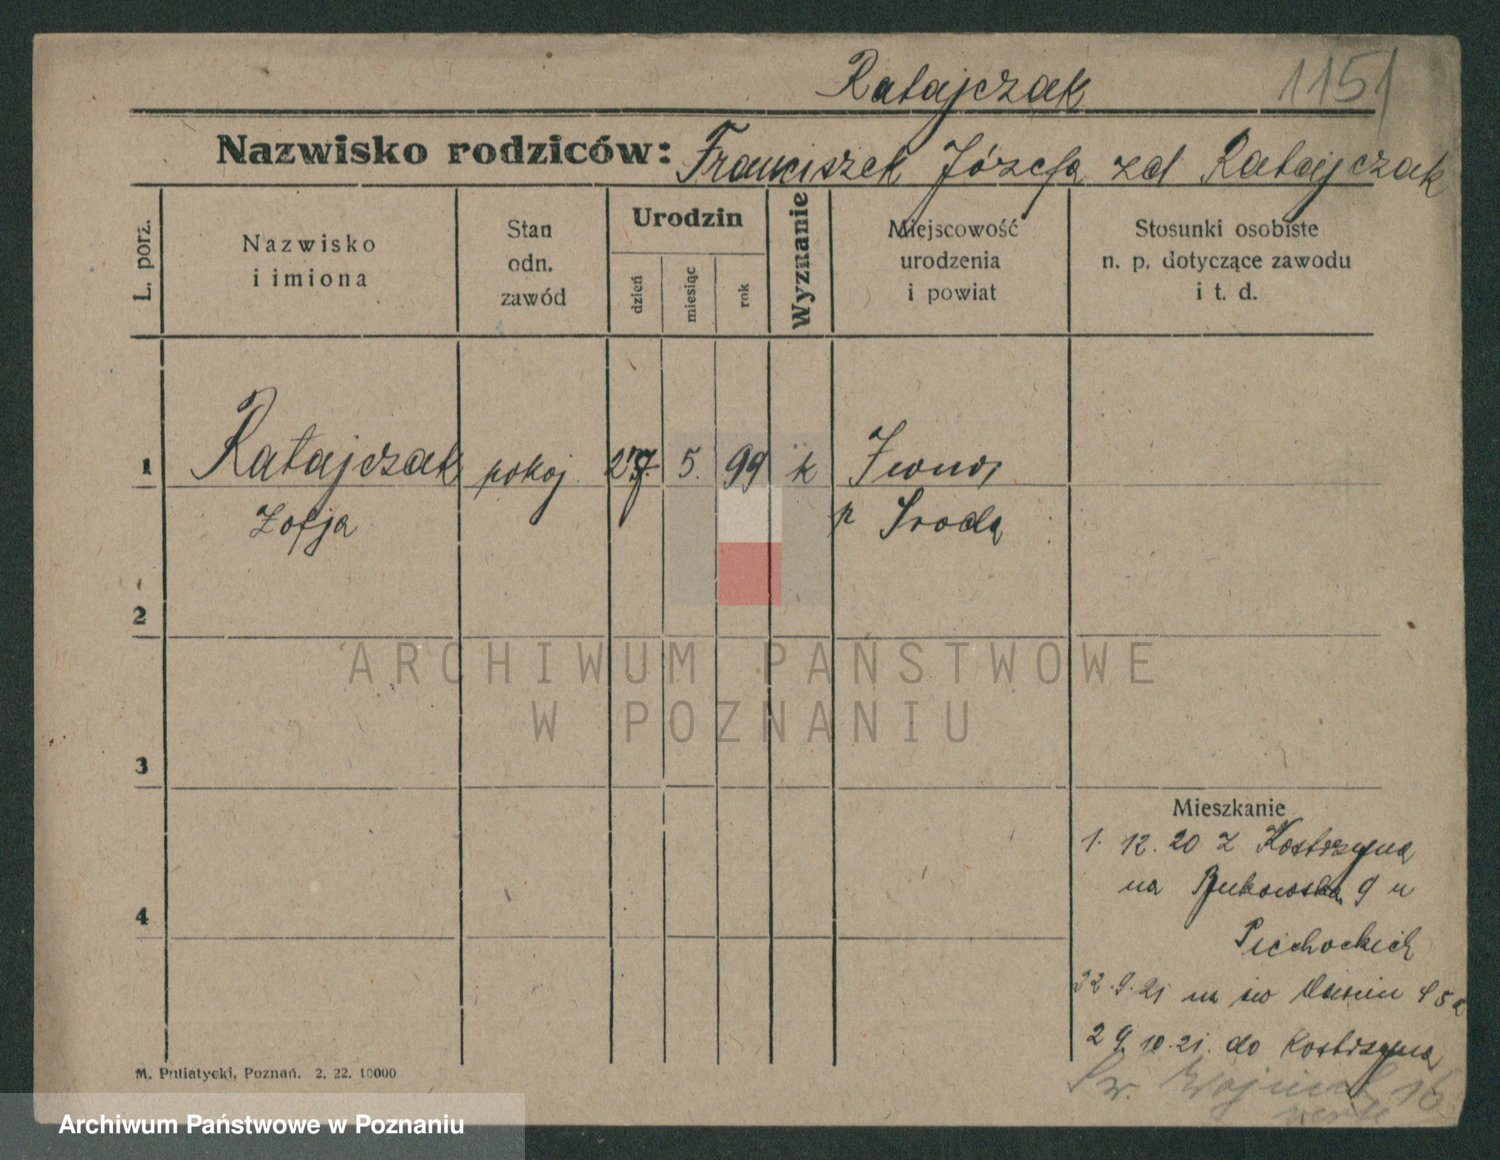 Ratajczak 1151
Nazwisko rodziców: Franciszek Józefa zd Ratajczak
L. porz.
Nazwisko
i imiona
Stan
odn.
zawód
Urodzin
dzień
miesiąc
rok
Wyznanie
Miejscowość
urodzenia
i powiat
Stosunki osobiste
n. p. dotyczące zawodu
i t. d.
1 Ratajczak pokoj. 27. 5. 99 k Iwno
Zofja p Sroda
2
ARCHIWUM PAŃSTWOWE
W POZNANIU
3
Mieszkanie
1. 12. 20 z Kostrzyna
na Bukowska 9 u
4
Piechockich
22. 9. 21 na św Marcin
29. 10. 21. do Kostrzyna
Św. Wojciech 16
M. Putiatycki, Poznań. 2. 22. 10000
Archiwum Państwowe w Poznaniu